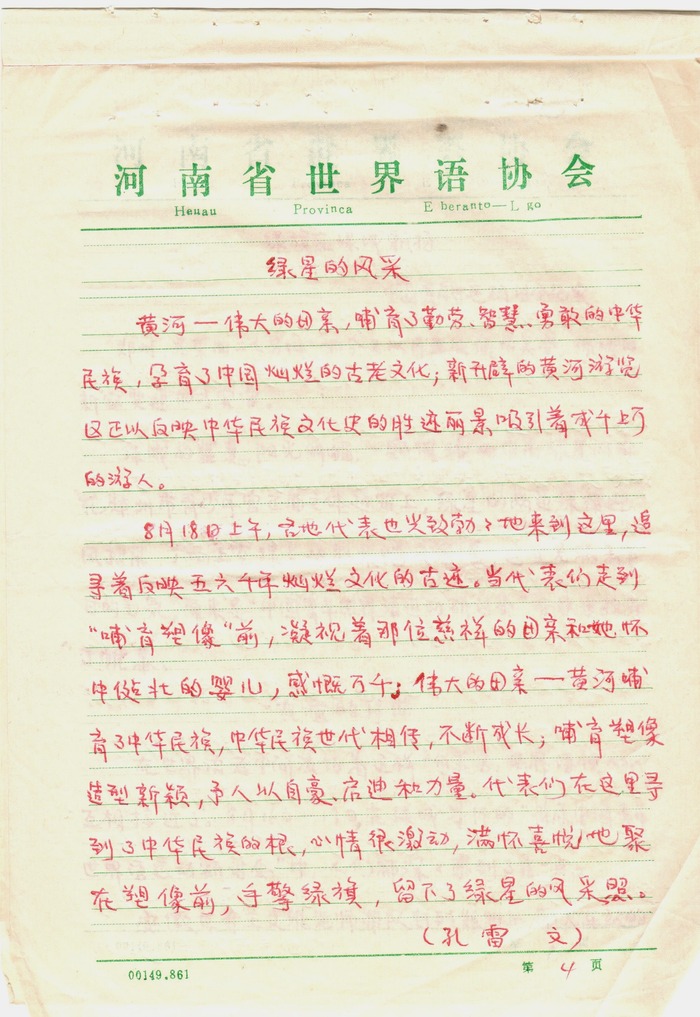 河南省世界语协会
Heuau Provinca E beranto—L go
绿星的风采
黄河一伟大的母亲,哺育了勤劳、智慧、勇敢的中华
民族,孕育了中国灿烂的古老文化;新开辟的黄河游览
区正以反映中华民族文化史的胜迹丽景吸引着成千上万
的游人。
8月18日上午,各地代表也兴致勃〻地来到这里,追
寻着反映五六千年灿烂文化的古迹。当代表们走到
“哺育塑像“前,凝视着那位慈祥的母亲和她怀
中健壮的婴儿,感慨万千:伟大的母亲—黄河哺
育了中华民族,中华民族世代相传,不断成长;哺育塑像
造型新颖,予人以自豪、启迪和力量。代表们在这里寻
到了中华民族的根,心情很激动,满怀喜悦地聚
在塑像前,手擎绿旗,留下了绿星的风采照。
(孔雷 文)
00149.861 第 4 页